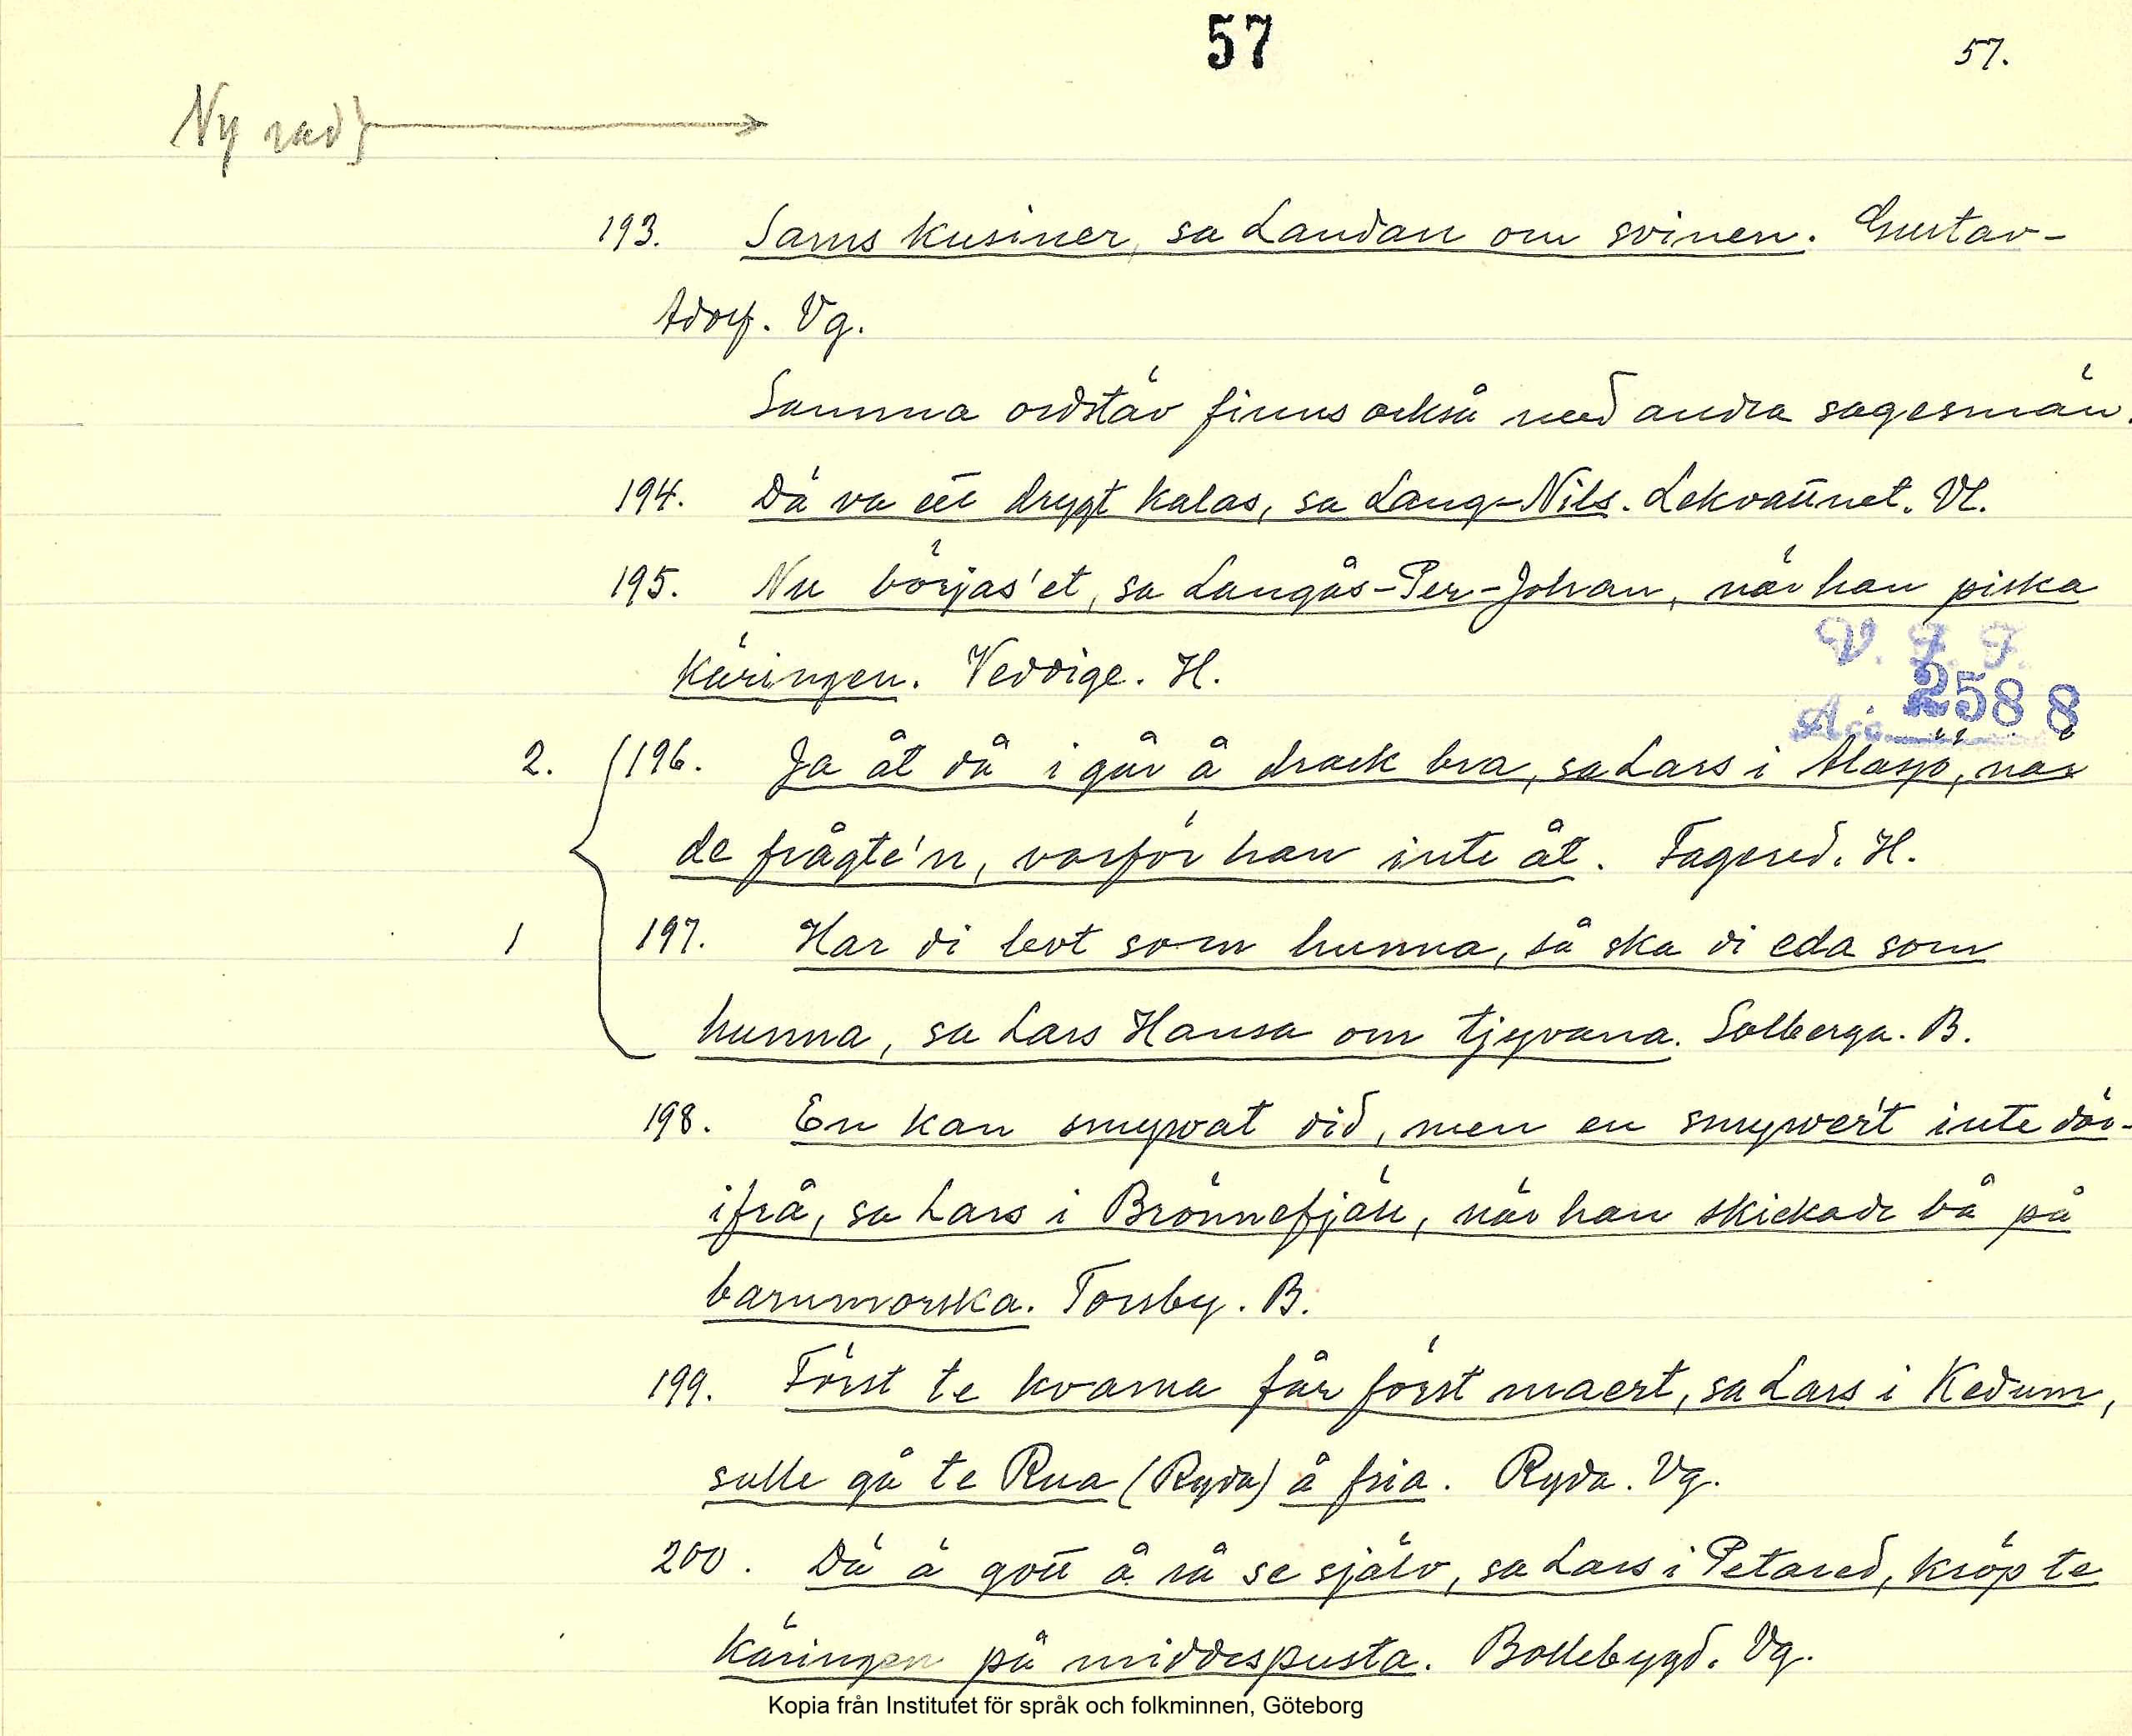 57
57.
Ny rad
193. Sams kusiner, sa Landan om svinen. Gustav-
Adolf. Vg.
Samma ordstäv finns också med andra sagesmän.
194. Dä va ett drygt kalas, sa Lang-Nils. Lekvattnet. Vl.
195. Nu börjas'et, sa Langås-Per-Johan, när han piska
käringen. Veddige. H.
V. F. F.
Acc. 2588
2. 196. Ja åt då i går å drack bra, sa Lars i Alasjö, när
de frågte'n, varför han inte åt. Fagered. H.
1 197. Har di levt som hunna, så ska di eda som
hunna, sa Lars Hansa om tjyvana. Solberga. B.
198. En kan smywat vid, men en smywer't inte där-
ifrå, sa Lars i Brönnefjäll, när han skickade bå på
barnmorska. Torsby. B.
199. Först te kvarna får först maert, sa Lars i Kedum,
sulle gå te Rua (Ryda) å fria. Ryda. Vg.
200. Dä ä gott å rå se själv, sa Lars i Petared, kröp te
käringen på middespusta. Bollebygd. Vg.
Kopia från Institutet för språk och folkminnen, Göteborg